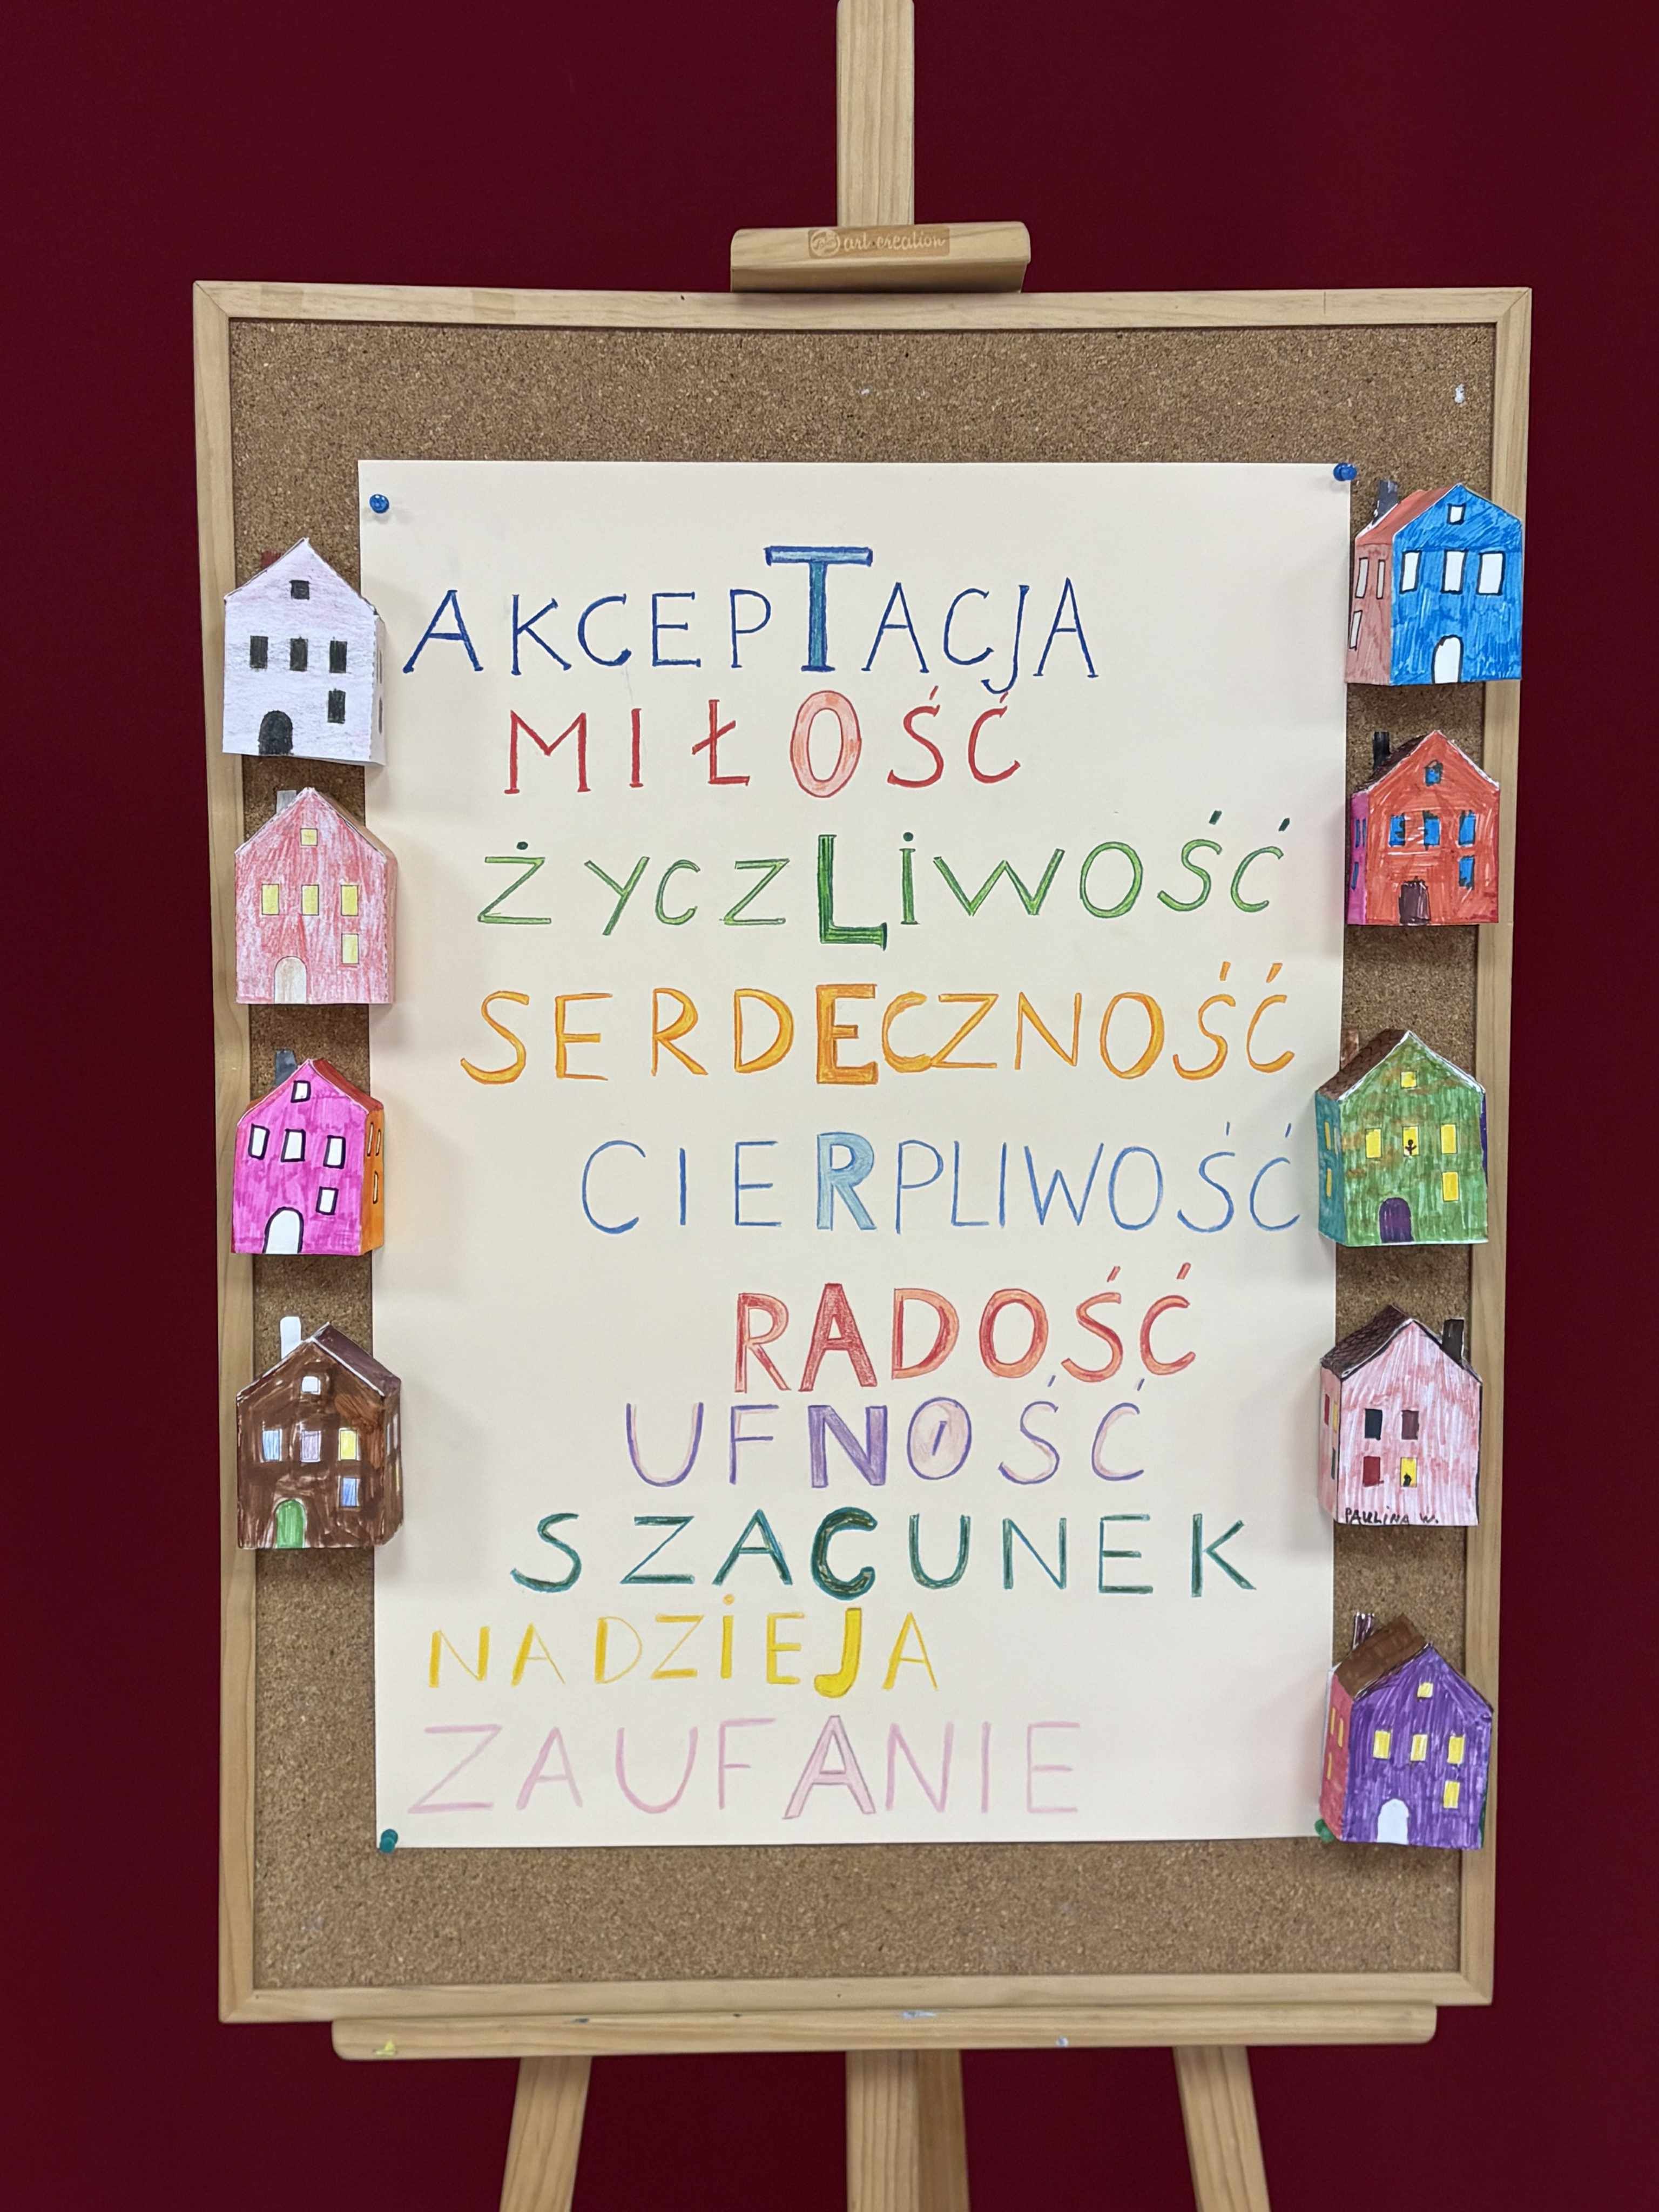 art creation
AKCEPTACJA
MIŁOŚĆ
ŻYCZLIWOŚĆ
SERDECZNOŚĆ
CIERPLIWOŚĆ
RADOŚĆ
UFNOŚĆ
SZACUNEK
NADZIEJA
ZAUFANIE
PAULINA W.